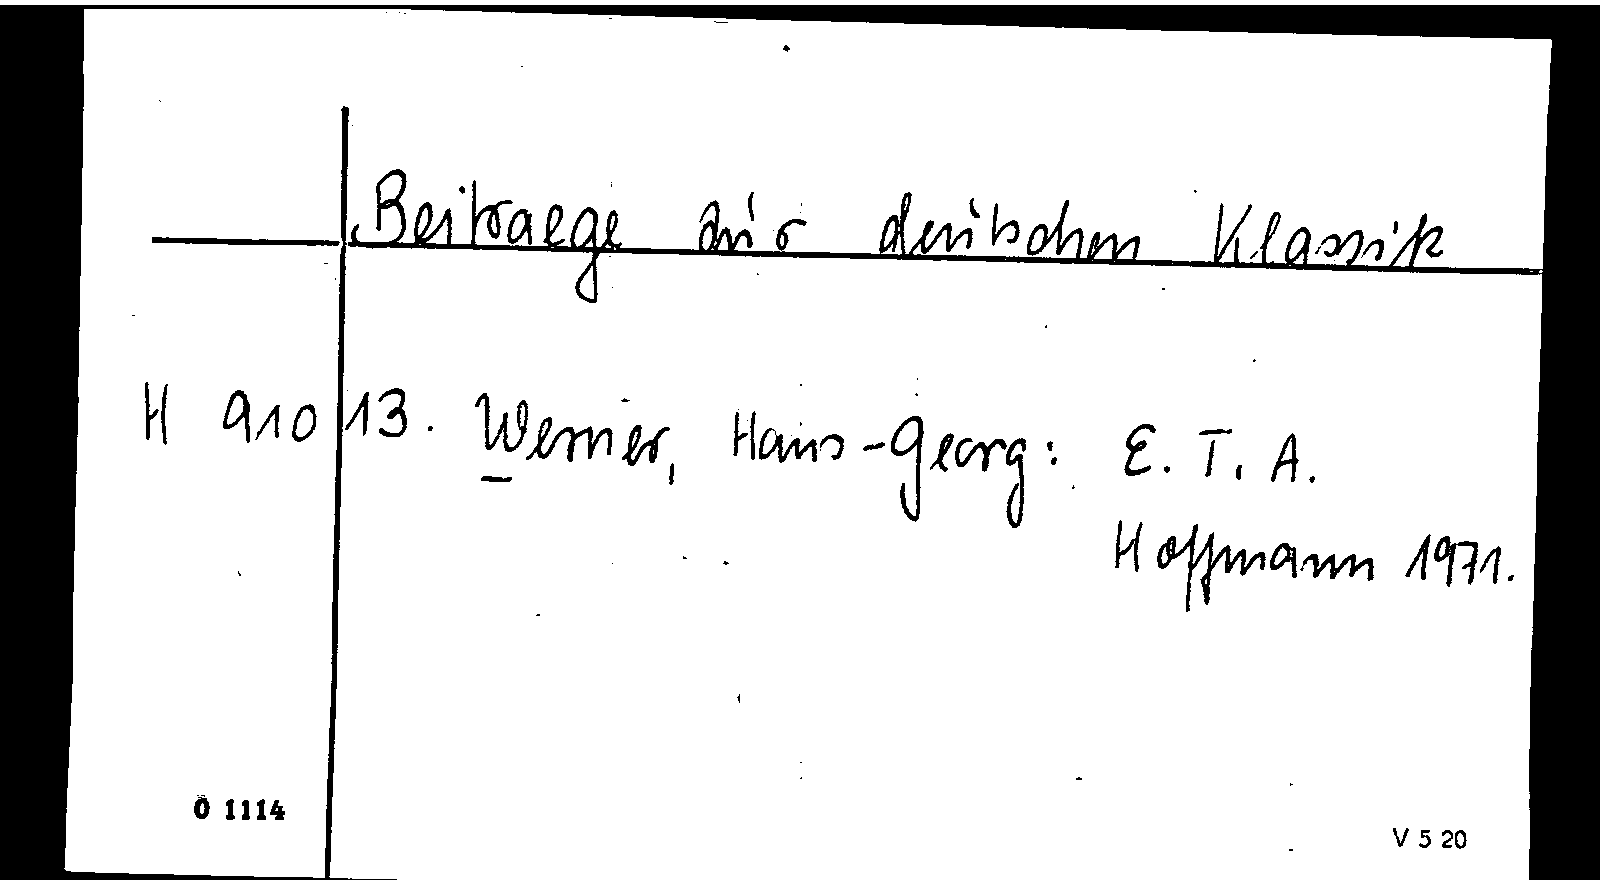 Beitraege zur deutschen Klassik
H 910 13. Werner, Hans-Georg: E. T. A.
Hoffmann 1971.
Ö 1114
V 5 20